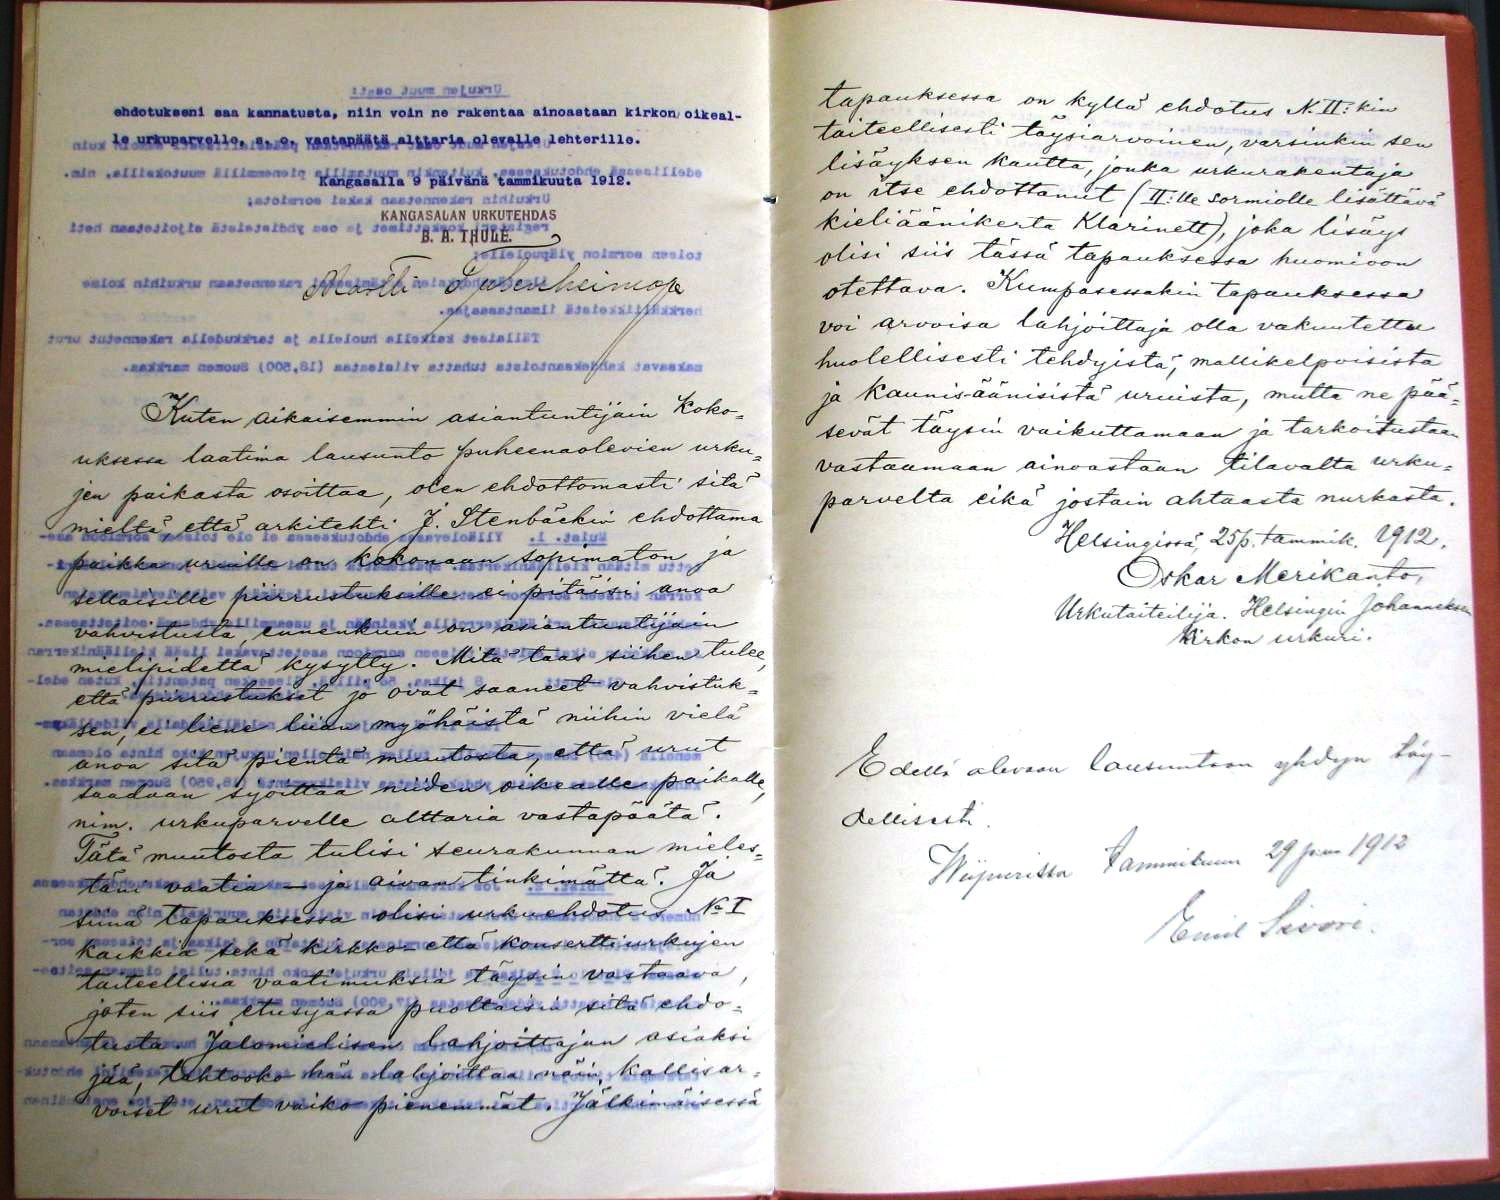 ehdotukseni saa kannatusta, niin voin ne rakentaa ainoastaan kirkon oikeal-
le urkuparvelle, s. o. vastapäätä alttaria olevalle lehterille.
Kangasalla 9 päivänä tammikuuta 1912.
KANGASALAN URKUTEHDAS
B. A. THULÉ.
Martti
Kuten aikaisemmin asiantuntijain koko-
uksessa laatima lausunto puheenaolevien urku-
jen paikasta osoittaa, olen ehdottomasti sitä
mieltä että arkitehti J. Stenbäckin ehdottama
paikka uruille on kokonaan sopimaton ja
sellaisille piirrustuksille ei pitäisi anoa
vahvistusta, ennenkuin on asiantuntijain
mielipidettä kysytty. Mitä taas siihen tulee,
että piirrustukset jo ovat saaneet vahvistuk-
sen, ei liene liian myöhäistä niihin vielä
anoa sitä pientä muutosta, että urut
saadaan sijoittaa niiden oikealle paikalle,
nim. urkuparvelle alttaria vastapäätä.
Tätä muutosta tulisi seurakunnan mieles-
täni vaatia — ja aivan tinkimättä. Ja
siinä tapauksessa olisi urkuehdotus No I
kaikkia sekä kirkko- että konserttiurkujen
taiteellisia vaatimuksia täysin vastaava,
joten siis etusijassa puoltaisin sitä ehdo-
tusta. Jalomielisen lahjoittajan asiaksi
jää, tahtooko hän lahjoittaa näin kallisar-
voiset urut vaiko pienemmät. Jälkimäisessä
tapauksessa on kyllä ehdotus N. II:kin
taiteellisesti täysiarvoinen, varsinkin sen
lisäyksen kautta, jonka urkurakentaja
on itse ehdottanut (II:lle sormiolle lisättävä
kieliäänikerta Klarinett), joka lisäys
olisi siis tässä tapauksessa huomioon
otettava. Kumpasessakin tapauksessa
voi arvoisa lahjoittaja olla vakuutettu
huolellisesti tehdyistä, mallikelpoisista
ja kaunis-äänisistä uruista, mutta ne pää-
sevät täysin vaikuttamaan ja tarkoitustaan
vastaamaan ainoastaan tilavalta urku-
parvelta eikä jostain ahtaasta nurkasta.
Helsingissä, 25 p. tammik. 1912.
Oskar Merikanto,
Urkutaiteilija. Helsingin Johanneksen
kirkon urkuri.
Edellä olevaan lausuntoon yhdyn täy-
dellisesti.
Wiipurissa tammikuun 29 p:nä 1912
Emil Sivori.